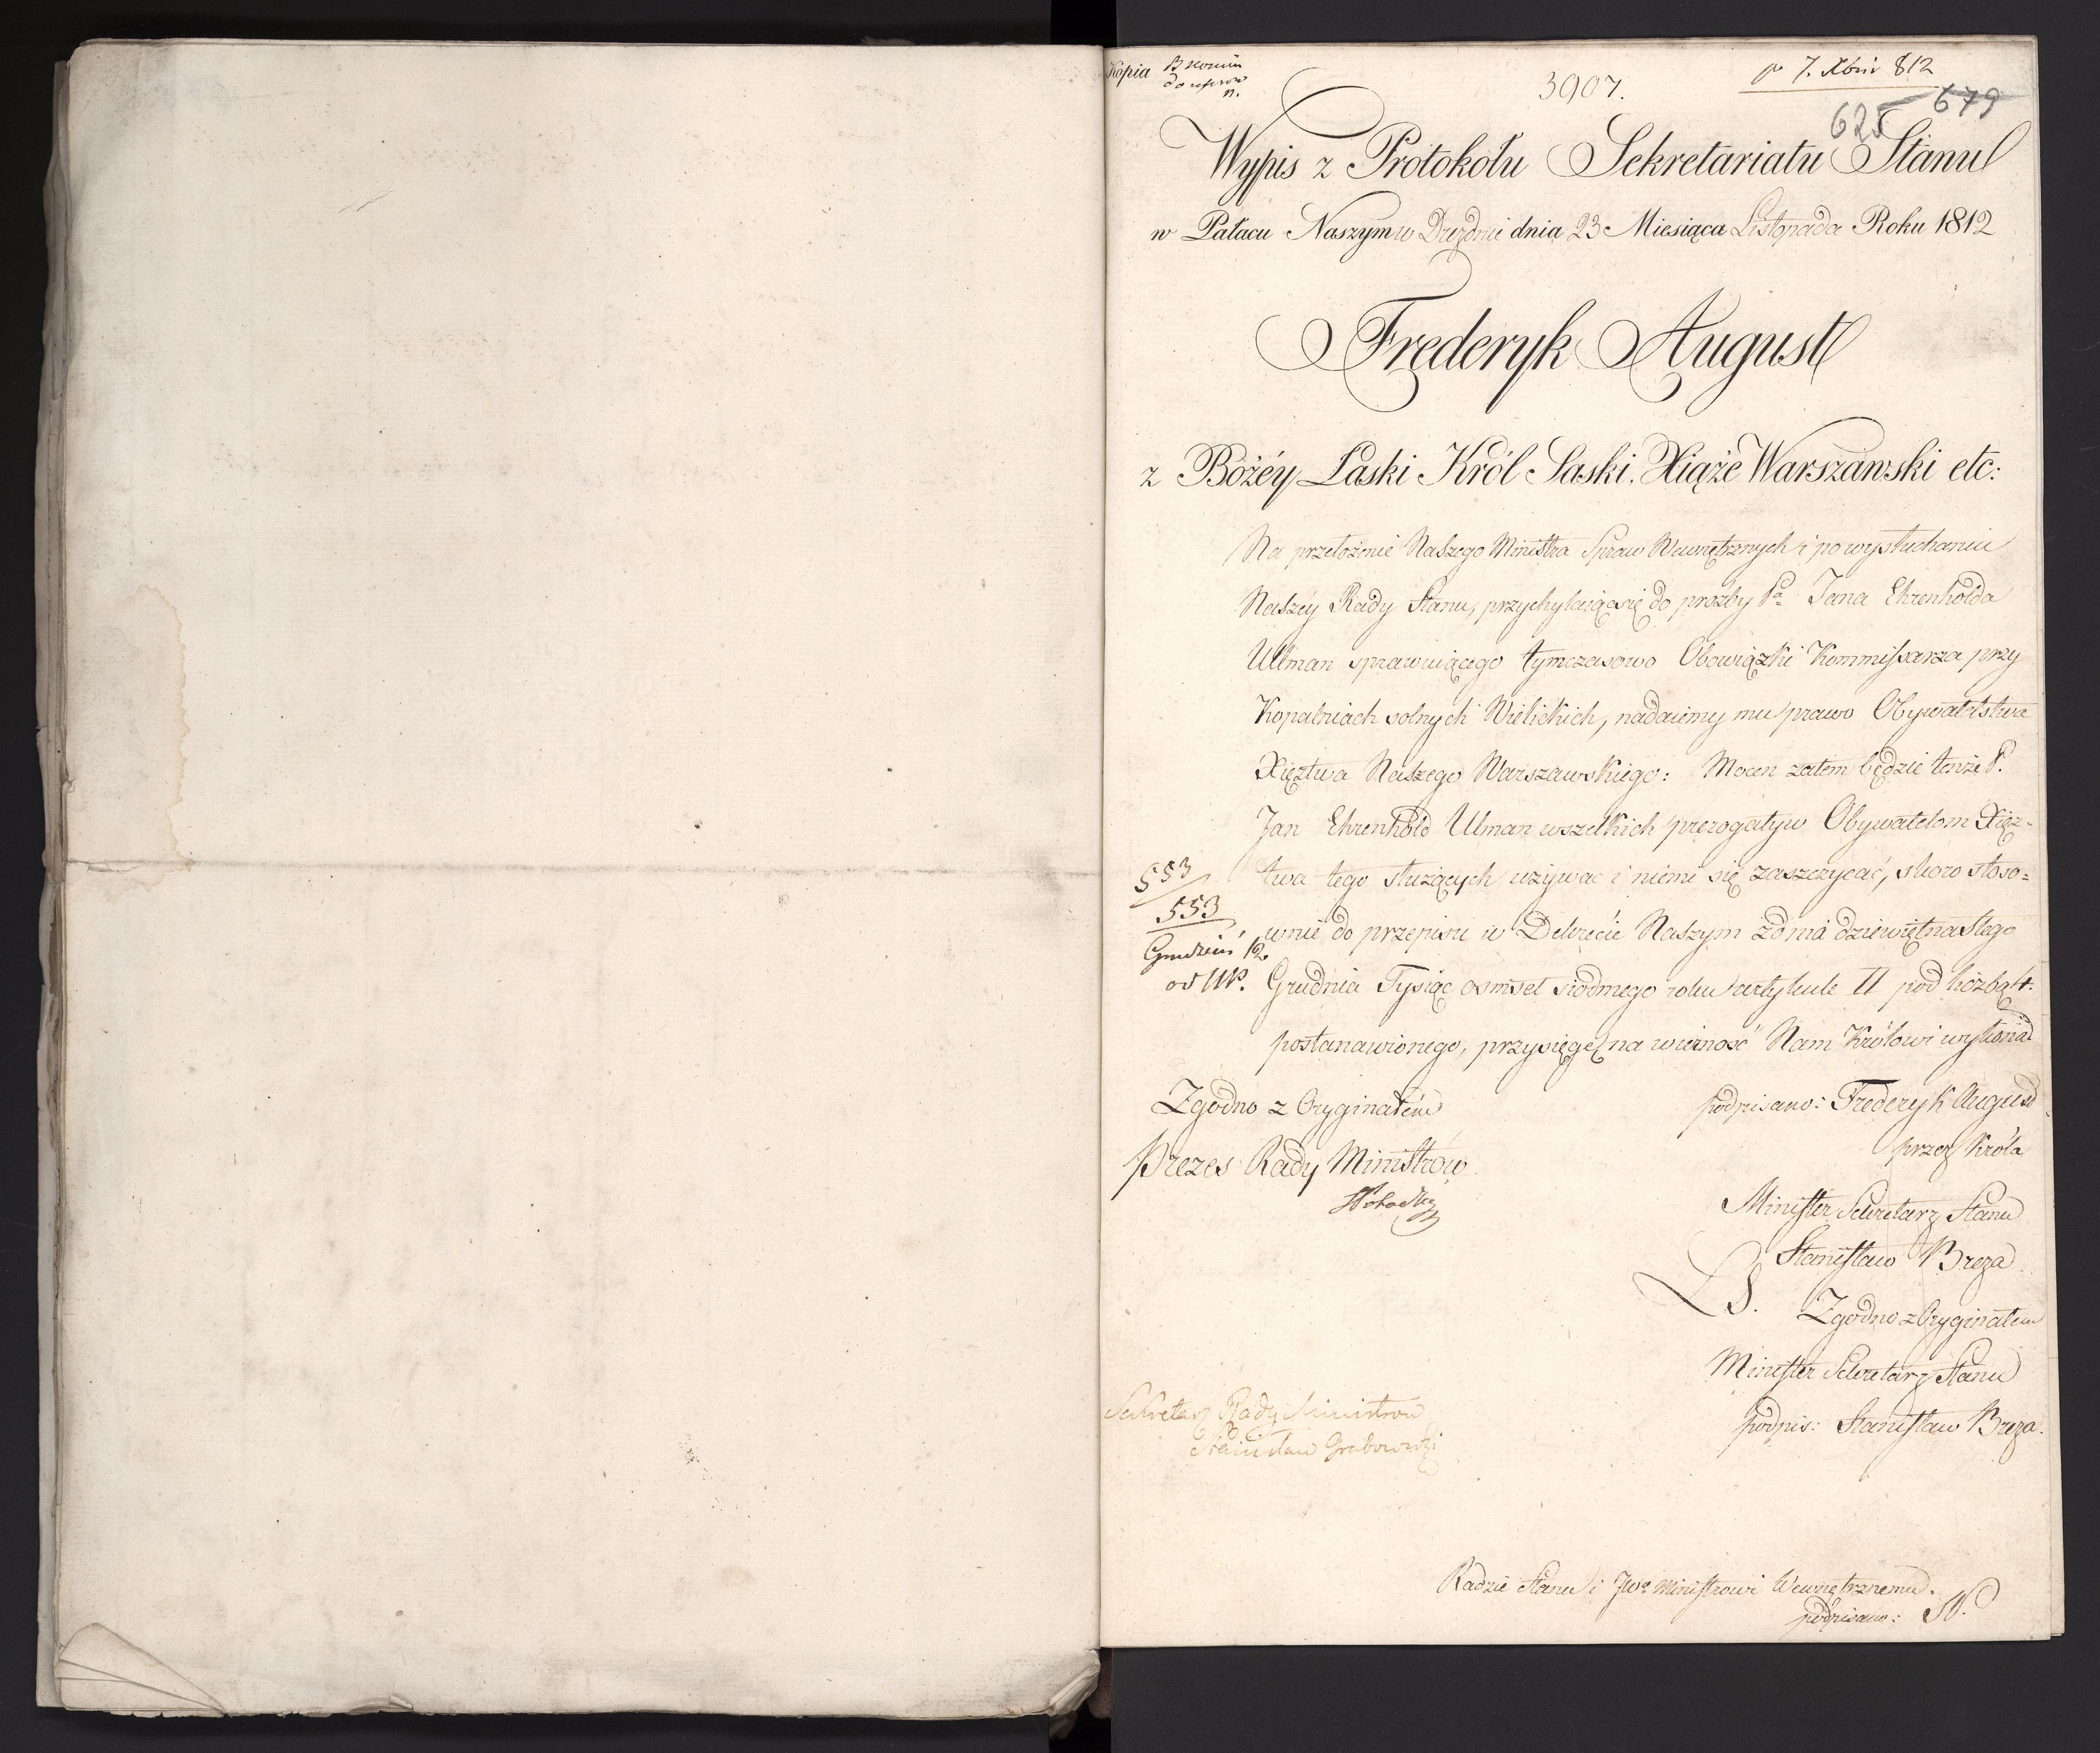 Kopia
3907.
pr 7. Xbris 812
625 679
Wypis z Protokołu Sekretariatu Stanu
w Pałacu Naszym w Dreźnie dnia 23 Miesiąca Listopada Roku 1812
Frederyk August
z Bożéy Łaski Król Saski. Xiąże Warszawski etc:
Na przełożenie Naszego Ministra Spraw Wewnętrznych i po wysłuchaniu
Naszéy Rady Stanu, przychylaiąc się do prozby Pa Jana Ehrenholda
Ullman sprawuiącego tymczasowo Obowiązki Kommissarza przy
Kopalniach solnych Wielickich, nadaiemy mu prawo Obywatelstwa
Xięztwa Naszego Warszawskiego: Mocen zatem będzie tenże P.
Jan Ehrenhold Ulman wszelkich prerogatyw Obywatelom Xięz-
twa tego służących używać i niemi się zaszczycać, skoro stoso=
wnie do przepisu w Dekrecie Naszym z dnia dziewiętnastego
Grudnia Tysiąc osmset siodmego roku artykule II pod liczbą 4.
postanowionego, przysięgę na wierność Nam Królowi wykona
553
553
Grudzień 12
od MP.
Zgodno z Oryginałem
Prezes Rady Ministrów
podpisano: Frederyk August
przez Króla
Minister Sekretarz Stanu
Stanisław Breza
LS.
Zgodno z Oryginałem
Minister Sekretarz Stanu
podpis: Stanisław Breza.
Sekretarz Rady Ministrow
Stanisław Grabowski
Radzie Stanu i JWe Ministrowi Wewnętrznemu.
podpisano: